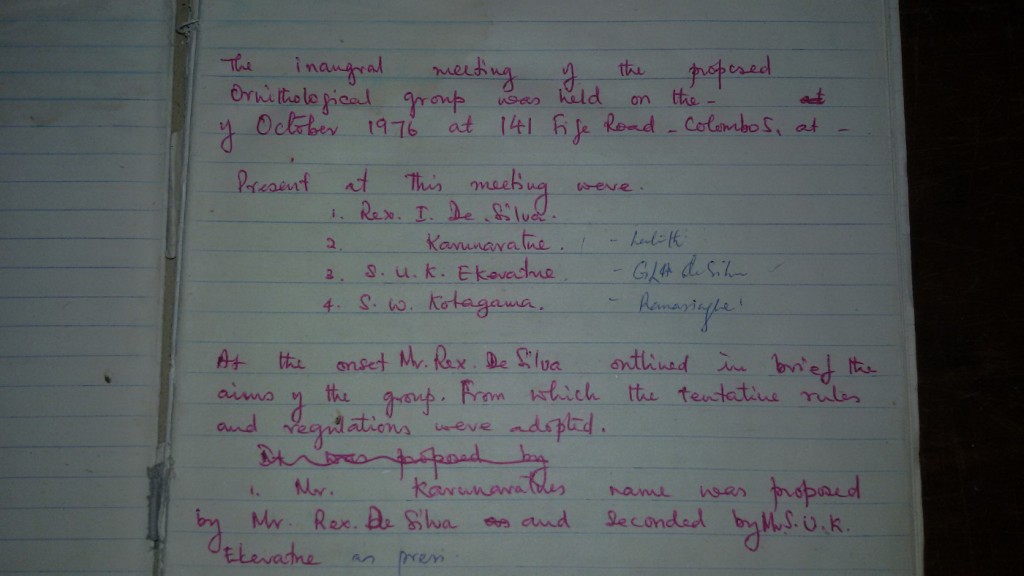 The inaugral meeting of the proposed
Ornithological group was held on the - at
of October 1976 at 141 Fife Road - Colombo 5, at -
Present at this meeting were.
1. Rex. I. De. Silva.
2. Karunaratne. - Lalith
3. S. U. K. Ekaratne - GLA de Silva
4. S. W. Kotagama. - Ranasinghe
At the onset Mr. Rex. De Silva outlined in brief the
aims of the group. From which the tentative rules
and regulations were adopted.
It was proposed by
1. Mr. Karunaratnes name was proposed
by Mr. Rex. De Silva as and seconded by Mr. S. U. K.
Ekaratne as presi